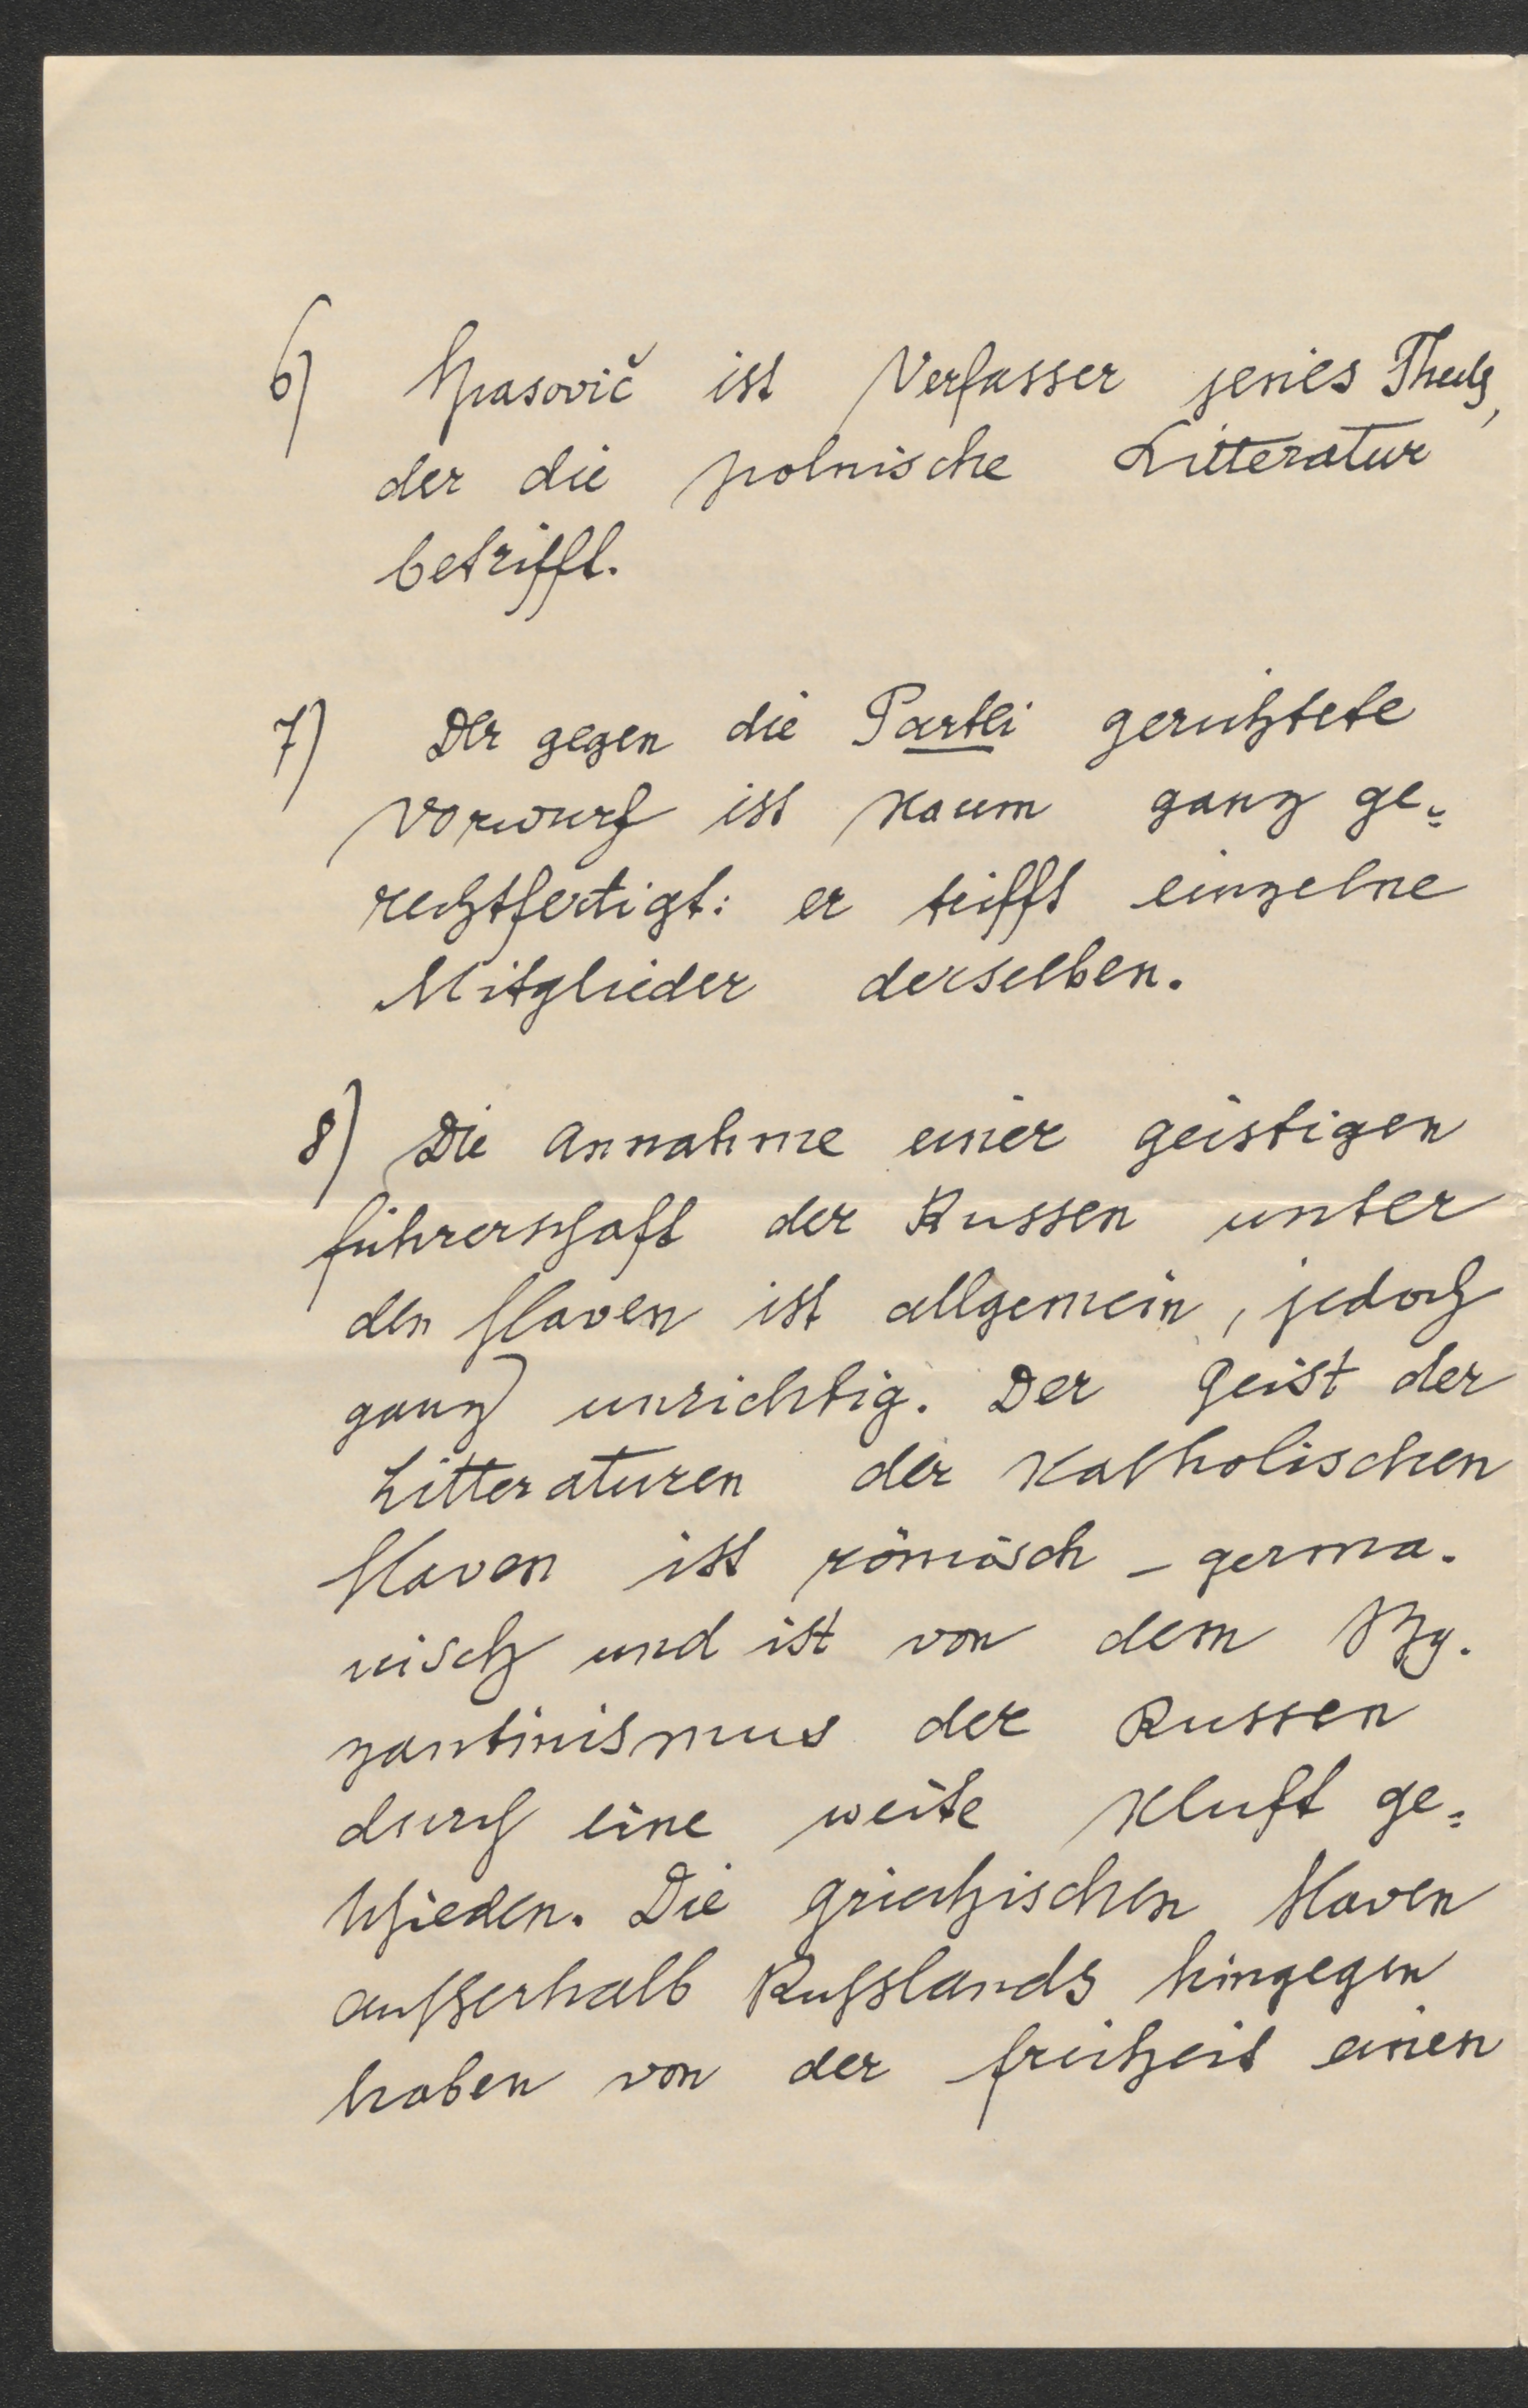 6) Spasovič ist Verfasser jenes Theils,
der die polnische Litteratur
betrifft.
7) Der gegen die Partei gerichtete
Vorwurf ist kaum ganz ge=
rechtfertigt: er trifft einzelne
Mitglieder derselben.
8) Die Annahme einer geistigen
Führerschaft der Russen unter
den Slaven ist allgemein, jedoch
ganz unrichtig. Der Geist der
Litteraturen der katholischen
Slaven ist römisch-germa-
nisch und ist von dem By-
zantinismus der Russen
durch eine weite Kluft ge=
schieden. Die griechischen Slaven
außerhalb Rußslands hingegen
haben von der Freiheit einen